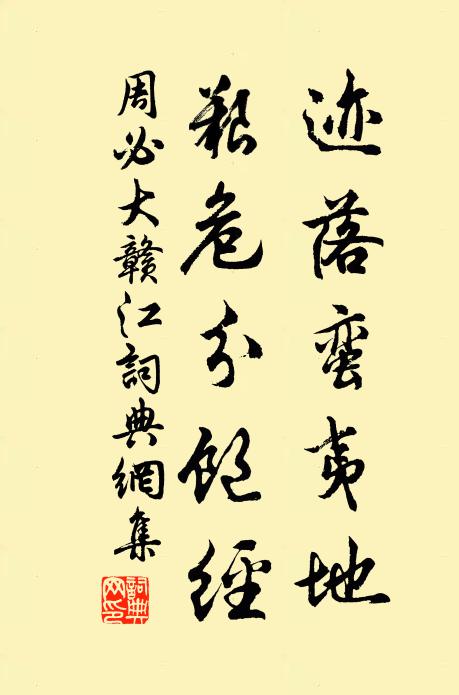 迹落蛮夷地
艰危分饱经
周必大赣江詞典網集
詞典网印